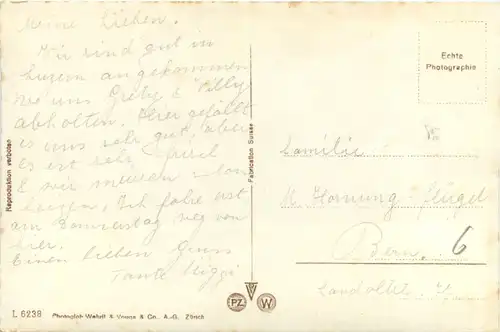 Meine Lieben.
Wir sind gut in
Luzern angekommen
wo uns Grety & Willy
abholten. Hier gefällt
es uns sehr gut, aber
Es ist sehr frisch
& wir
Ich fahre erst
am Donnerstag weg von
hier.
Einen lieben Gruss
Tante
Echte
Photographie
Familie
M. Hornung-Flügel
Bern. 6
Reproduktion verboten
Fabrication Suisse
L 6238 Photoglob-Wehrli & Vouga & Co. A.-G. Zürich
PZ W